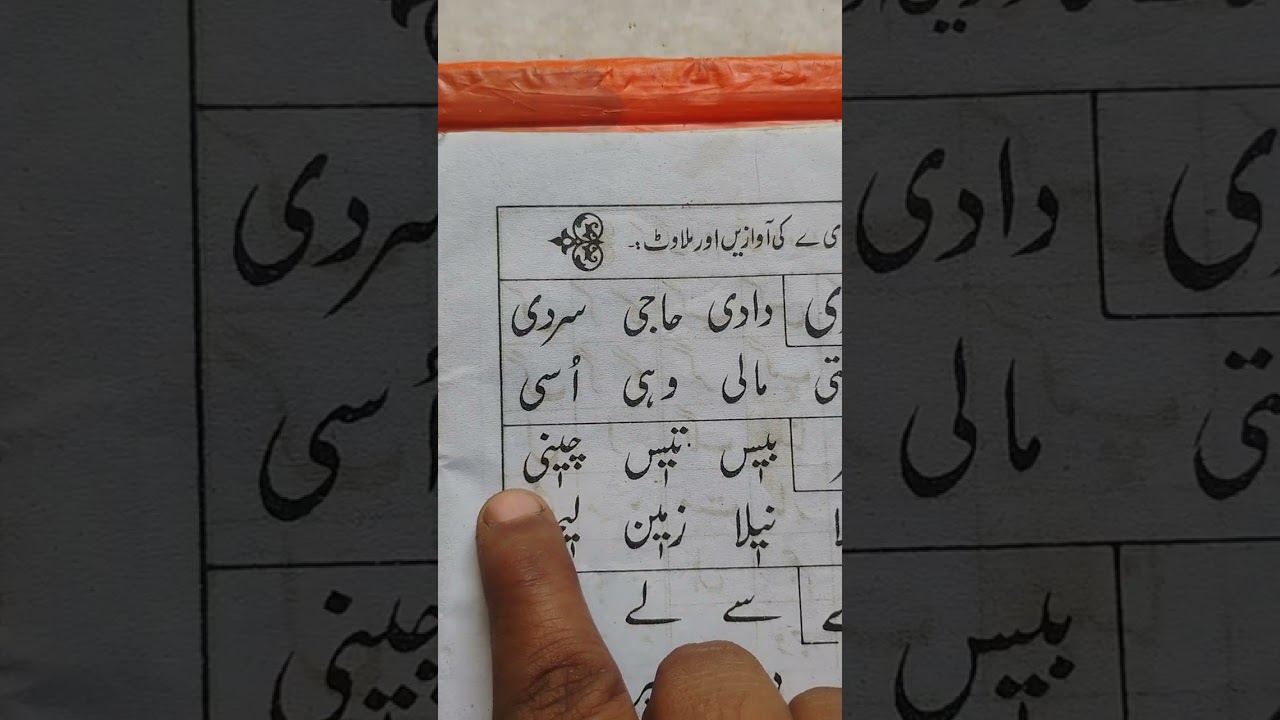 ی ے کی آوازیں اور ملاوٹ :-
دادی حاجی سردی
مالی وہی اُسی
بیٖس تیٖس چیٖنی
نیٖلا زمیٖن
سے لے